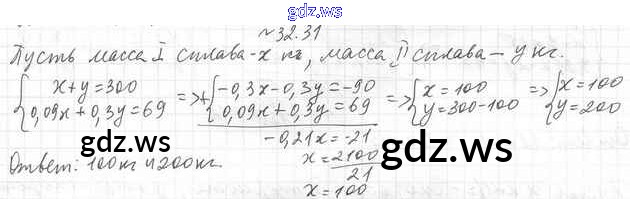 gdz.ru
№32.31
Пусть масса I сплава - x кг, масса II сплава - y кг.
{x+y=300 {0,09x+0,3y=69 => + {-0,3x-0,3y=-90 {0,09x+0,3y=69 => {x=100 {y=300-100 => {x=100 {y=200
-0,21x=-21
x=2100/21
x=100
Ответ: 100 кг и 200 кг.
gdz.ru
gdz.ru
gdz.ru